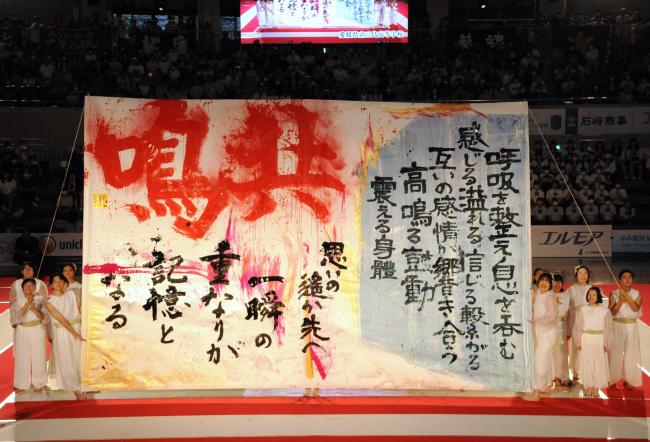 愛媛県立三島高等学校
石崎商事
unich
エルモア
呼吸を整え息を呑む
感じる溢れる信じる繋がる
互いの感情が響き合う
高鳴る鼓動
震える身體
共鳴
思いの遥か先へ
一瞬の
重なりが
記憶と
なる